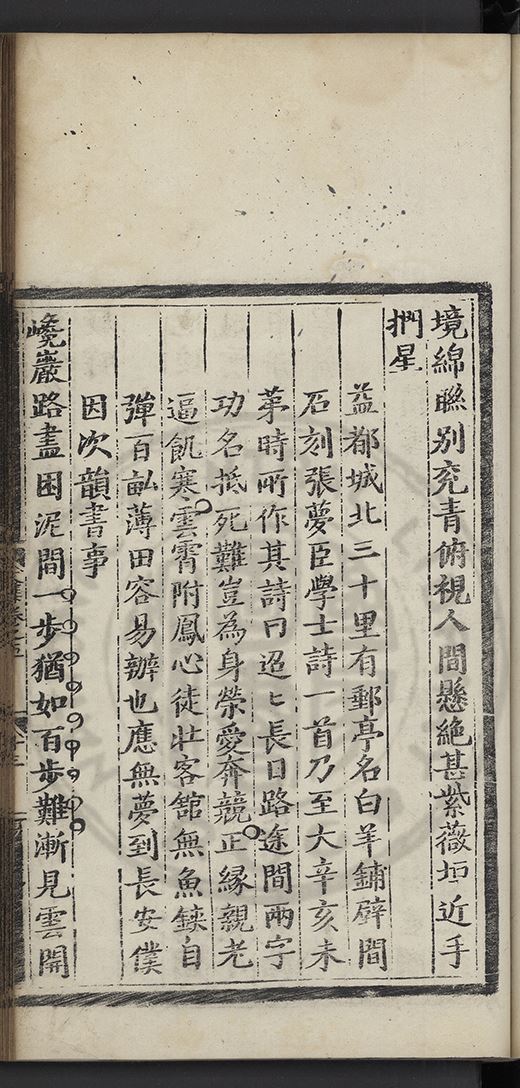 境綿聮別兖青俯視人間懸絶甚紫薇垣近手
捫星
益都城北三十里有郵亭名白羊鋪壁間
石刻張夢臣學士詩一首乃至大辛亥未
苐時所作其詩曰迢〻長日路途間兩字
功名抵死難豈為身榮愛奔競正縁親老
逼飢寒雲霄附鳳心徒壮客舘無魚鋏自
彈百畆薄田容易辦也應無夢到長安僕
因次韻書事
巉巖路盡困泥間一歩猶如百歩難漸見雲開